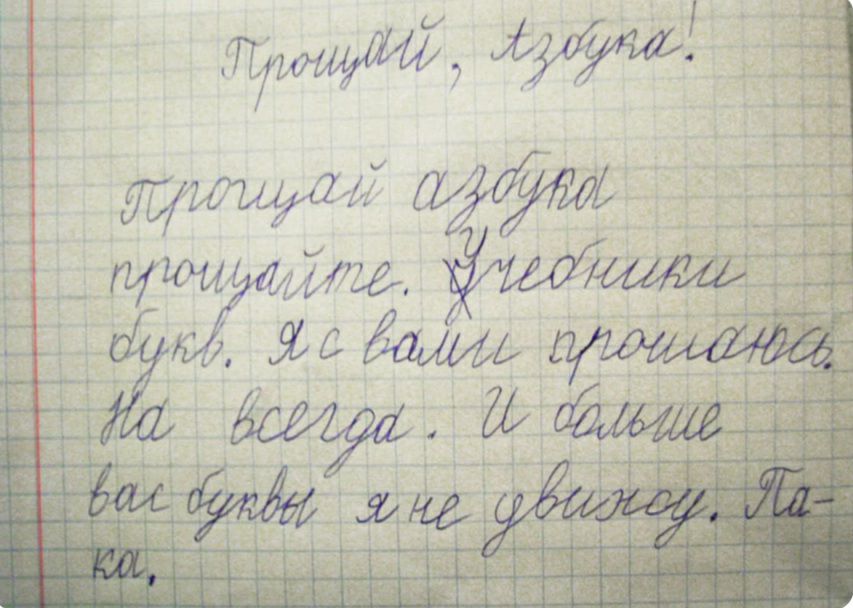 Прощай, Азбука!
Прощай азбука
прощайте. Учебники
букв. Я с вами прошаюсь.
На всегда. И больше
вас буквы я не увижоу. Па-
ка.